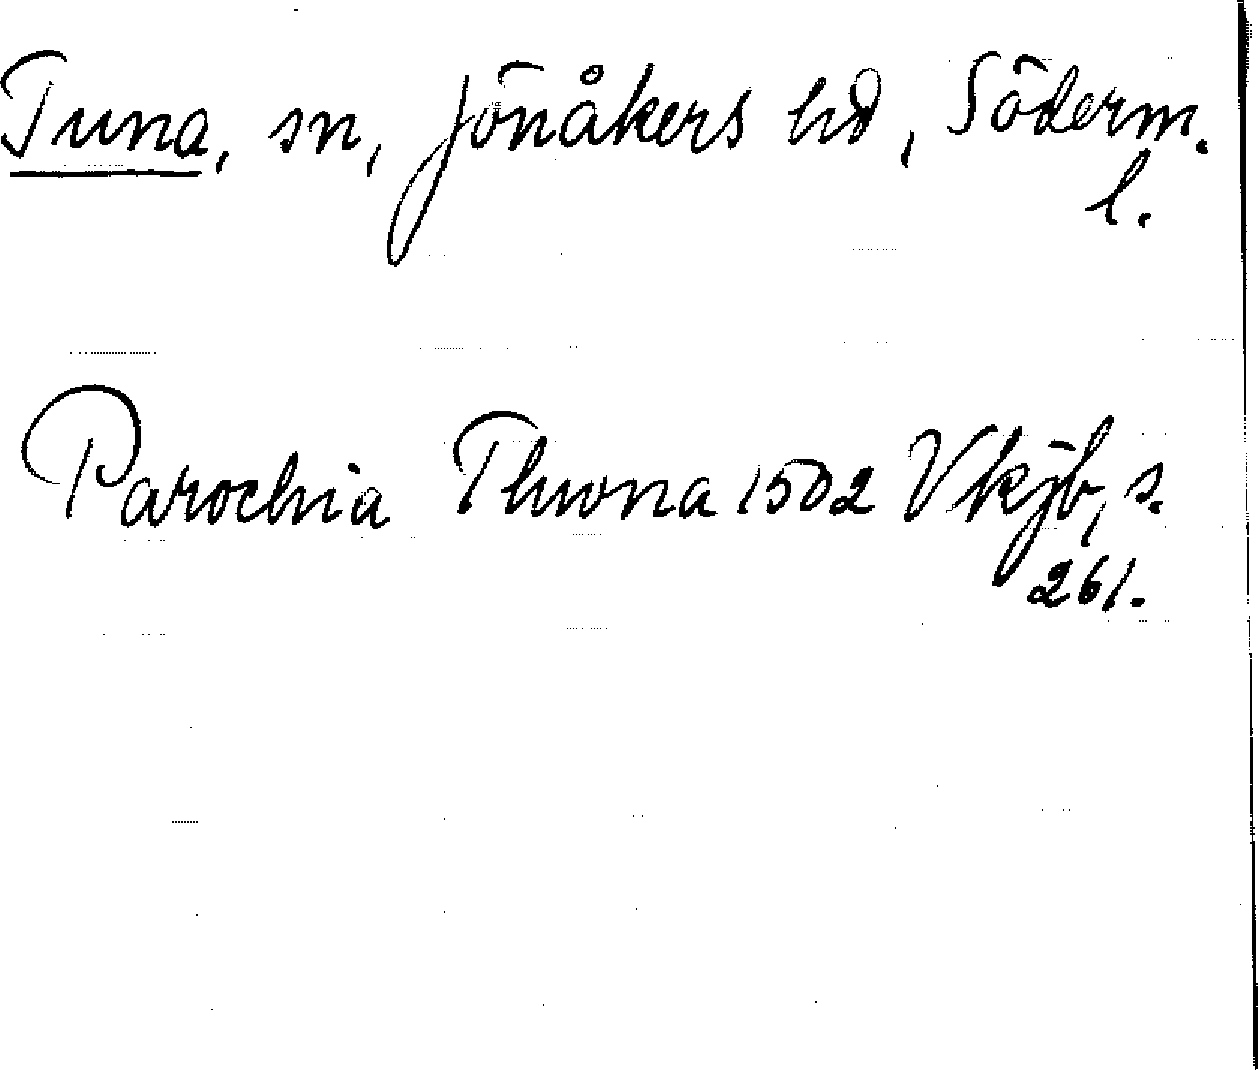 Tuna, sn, Jönåkers hd, Söderm.
l.
Parochia Thwna 1502 Vkjb, s.
261.